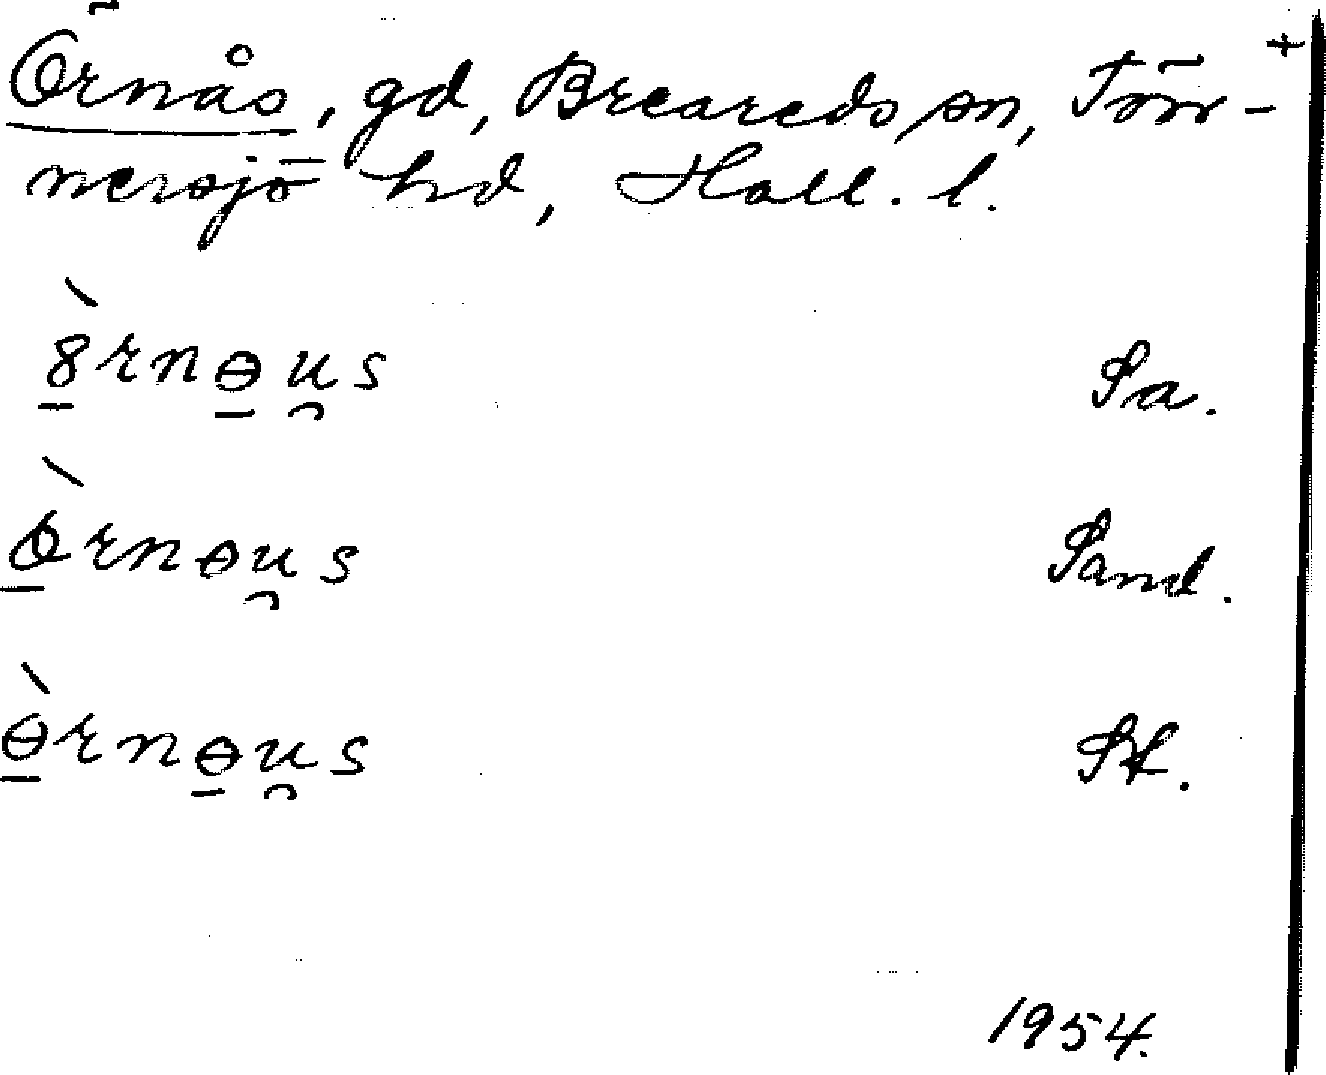 Örnås, gd, Breareds sn, Tön-
nersjö hd, Hall. l.
8̱̀rnɵ̱u̯s Sa.
Ò̱rnɵu̯s Sand.
ɵ̱̀rnɵ̱u̯s St.
1954.